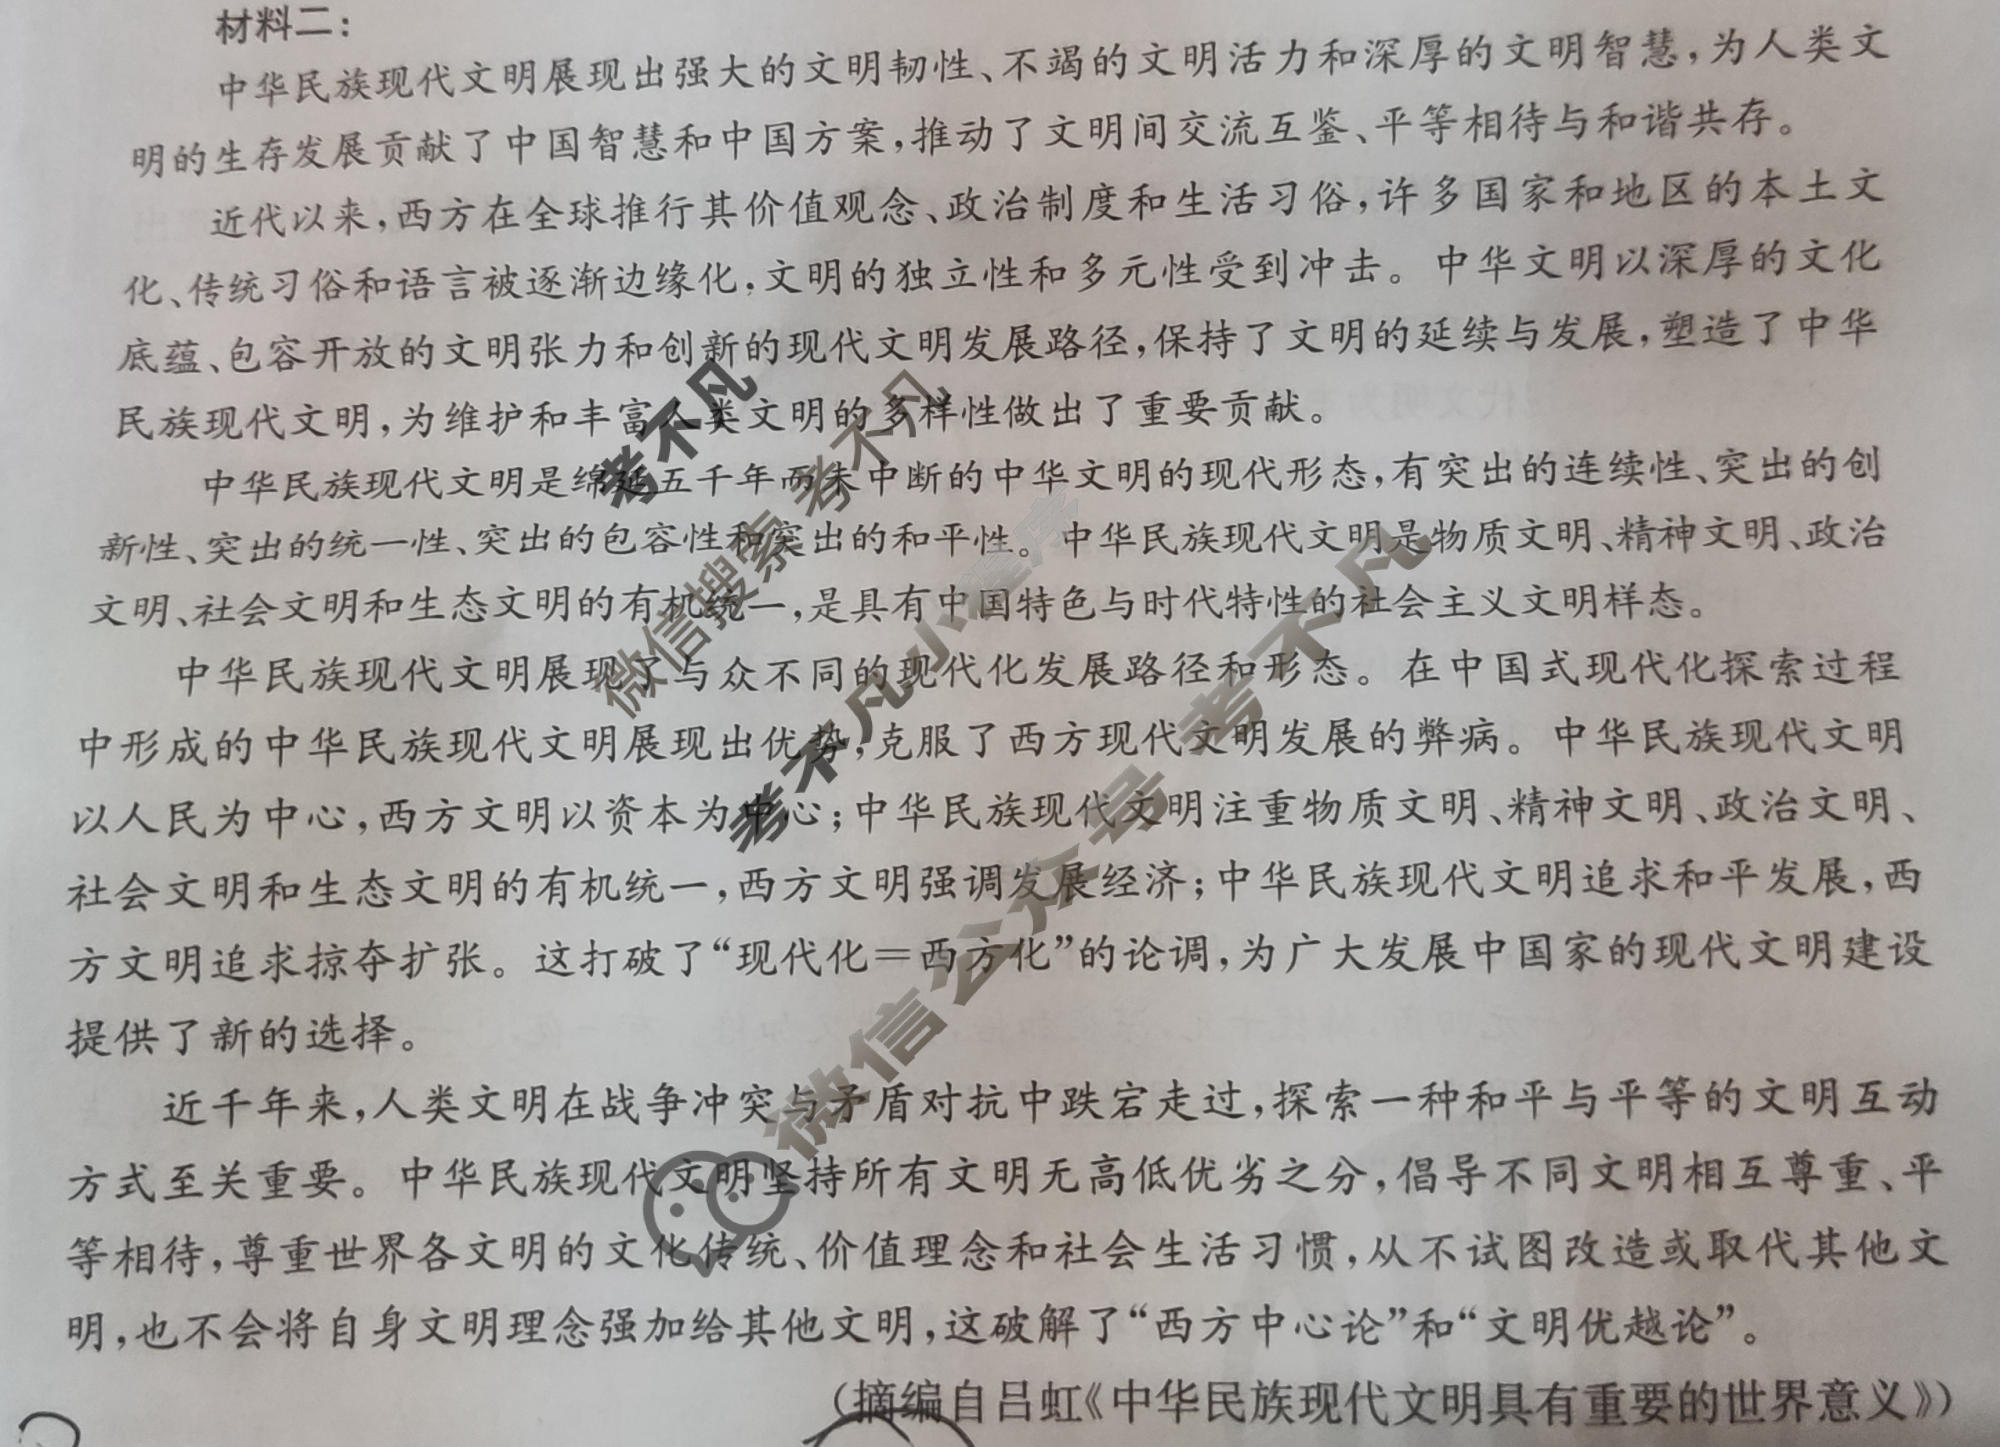 材料二：
中华民族现代文明展现出强大的文明韧性、不竭的文明活力和深厚的文明智慧，为人类文
明的生存发展贡献了中国智慧和中国方案，推动了文明间交流互鉴、平等相待与和谐共存。
近代以来，西方在全球推行其价值观念、政治制度和生活习俗，许多国家和地区的本土文
化、传统习俗和语言被逐渐边缘化，文明的独立性和多元性受到冲击。中华文明以深厚的文化
底蕴、包容开放的文明张力和创新的现代文明发展路径，保持了文明的延续与发展，塑造了中华
民族现代文明，为维护和丰富人类文明的多样性做出了重要贡献。
中华民族现代文明是绵延五千年而未中断的中华文明的现代形态，有突出的连续性、突出的创
新性、突出的统一性、突出的包容性和突出的和平性。中华民族现代文明是物质文明、精神文明、政治
文明、社会文明和生态文明的有机统一，是具有中国特色与时代特性的社会主义文明样态。
中华民族现代文明展现了与众不同的现代化发展路径和形态。在中国式现代化探索过程
中形成的中华民族现代文明展现出优势，克服了西方现代文明发展的弊病。中华民族现代文明
以人民为中心，西方文明以资本为中心；中华民族现代文明注重物质文明、精神文明、政治文明、
社会文明和生态文明的有机统一，西方文明强调发展经济；中华民族现代文明追求和平发展，西
方文明追求掠夺扩张。这打破了“现代化＝西方化”的论调，为广大发展中国家的现代文明建设
提供了新的选择。
近千年来，人类文明在战争冲突与矛盾对抗中跌宕走过，探索一种和平与平等的文明互动
方式至关重要。中华民族现代文明坚持所有文明无高低优劣之分，倡导不同文明相互尊重、平
等相待，尊重世界各文明的文化传统、价值理念和社会生活习惯，从不试图改造或取代其他文
明，也不会将自身文明理念强加给其他文明，这破解了“西方中心论”和“文明优越论”。
（摘编自吕虹《中华民族现代文明具有重要的世界意义》）
考不凡
微信搜索 考不凡
考不凡小程序
微信公众号 考不凡